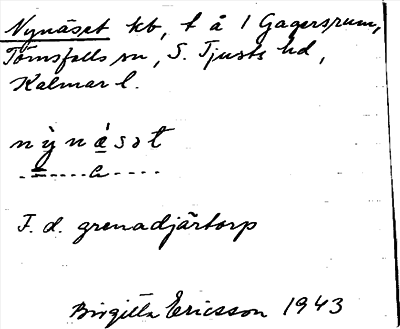 Nynäset kb, t å 1 Gagersrum,
Törnsfalls sn, S. Tjusts hd,
Kalmar l.
nỳnä́sət
F. d. grenadjärtorp
Birgitta Ericsson 1943